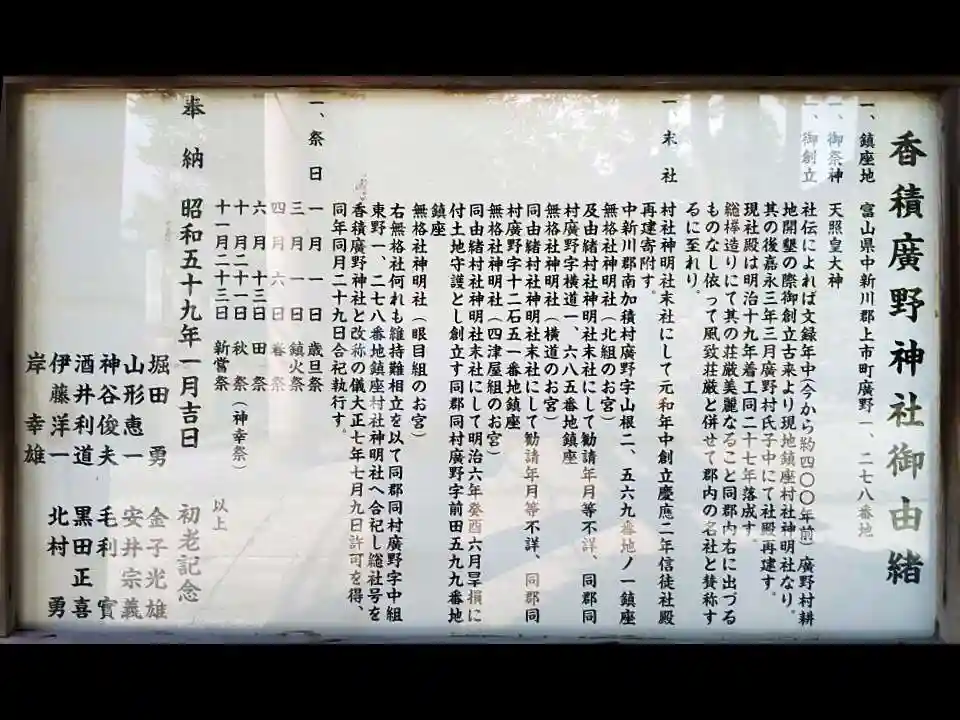 香積廣野神社御由緒
一、鎮座地 富山県中新川郡上市町廣野一、二七八番地
一、御祭神 天照皇大神
一、御創立 社伝によれば文録年中(今から約四〇〇年前)廣野村耕
地開墾の際御創立古来より現地鎮座村社神明社なり。
其の後嘉永三年三月廣野村氏子中にて社殿再建す。
現社殿は明治十九年着工同二十七年落成す。
総欅造りにて其の荘厳美麗なること同郡内右に出づる
ものなし依って風致荘厳と併せて郡内の名社と賛称す
るに至れり。
一、末社 村社神明社末社にして元和年中創立慶應二年信徒社殿
再建寄附す。
中新川郡南加積村廣野字山根二、五六九番地ノ一鎮座
無格社神明社(北組のお宮)
及由緒村社神明社末社にして勧請年月等不詳、同郡同
村廣野字横道一、六八五番地鎮座
無格社神明社(横道のお宮)
同由緒村社神明社末社にして勧請年月等不詳、同郡同
村廣野字十二石五一番地鎮座
無格社神明社(四津屋組のお宮)
同由緒村社神明社末社にして明治六年癸酉六月旱損に
付土地守護とし創立す同郡同村廣野字前田五九九番地
鎮座
無格社神明社(眼目組のお宮)
右無格社何れも維持難相立を以て同郡同村廣野字中組
東野一、二七八番地鎮座村社神明社へ合祀し総社号を
香積廣野神社と改称の儀大正七年七月九日許可を得、
同年同月二十九日合祀執行す。
一、祭日 一月一日 歳旦祭
三月一日 鎮火祭
四月六日 春祭
六月十三日 田祭
十月二十一日 秋祭(神幸祭)
十一月二十三日 新嘗祭
以上
奉納 昭和五十九年一月吉日 初老記念
堀田勇 金子光雄
山形恵一 安井宗義
神谷俊夫 毛利實
酒井利道 黒田正喜
伊藤洋一 北村勇
岸幸雄